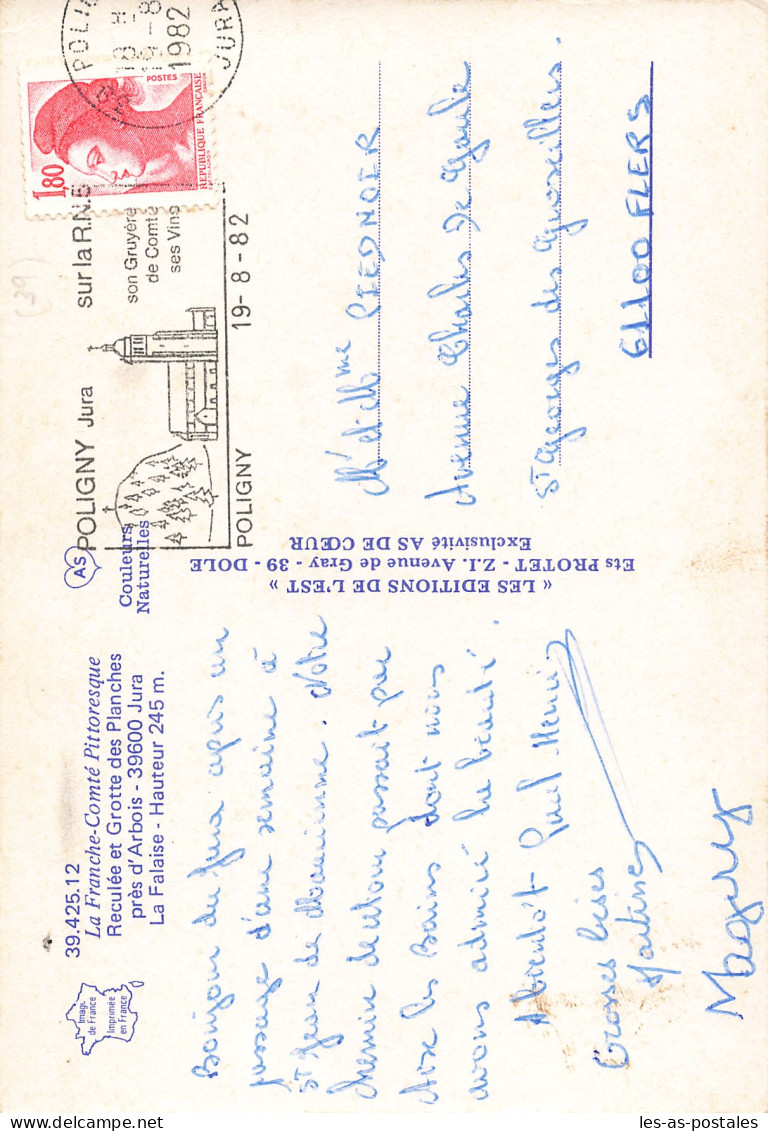 39.425.12
La Franche-Comté Pittoresque
Reculée et Grotte des Planches
près d'Arbois - 39600 Jura
La Falaise - Hauteur 245 m.
Image
de France
Imprimée
en France
AS
Couleurs
Naturelles
Bonjour du Jura après un
passage d'une semaine à
St Jean de Maurienne. Notre
chemin de retour passait par
Aix les Bains dont nous
avons admiré la beauté.
A bientôt Paul Henri
Grosses bises
Martine
Magery
« LES EDITIONS DE L'EST »
Ets PROTET - Z.I. Avenue de Gray - 39 - DOLE
Exclusivité AS DE CŒUR
POLIGNY Jura sur la R.N.5
son Gruyère
de Comté
ses Vins
POLIGNY 19-8-82
JURA
19-8
1982
1,80
POSTES
REPUBLIQUE FRANÇAISE
(39)
Mr et Mme PIEDNOIR
Avenue Charles De Gaule
St Georges des Groseillers.
61100 FLERS
les-as-postales